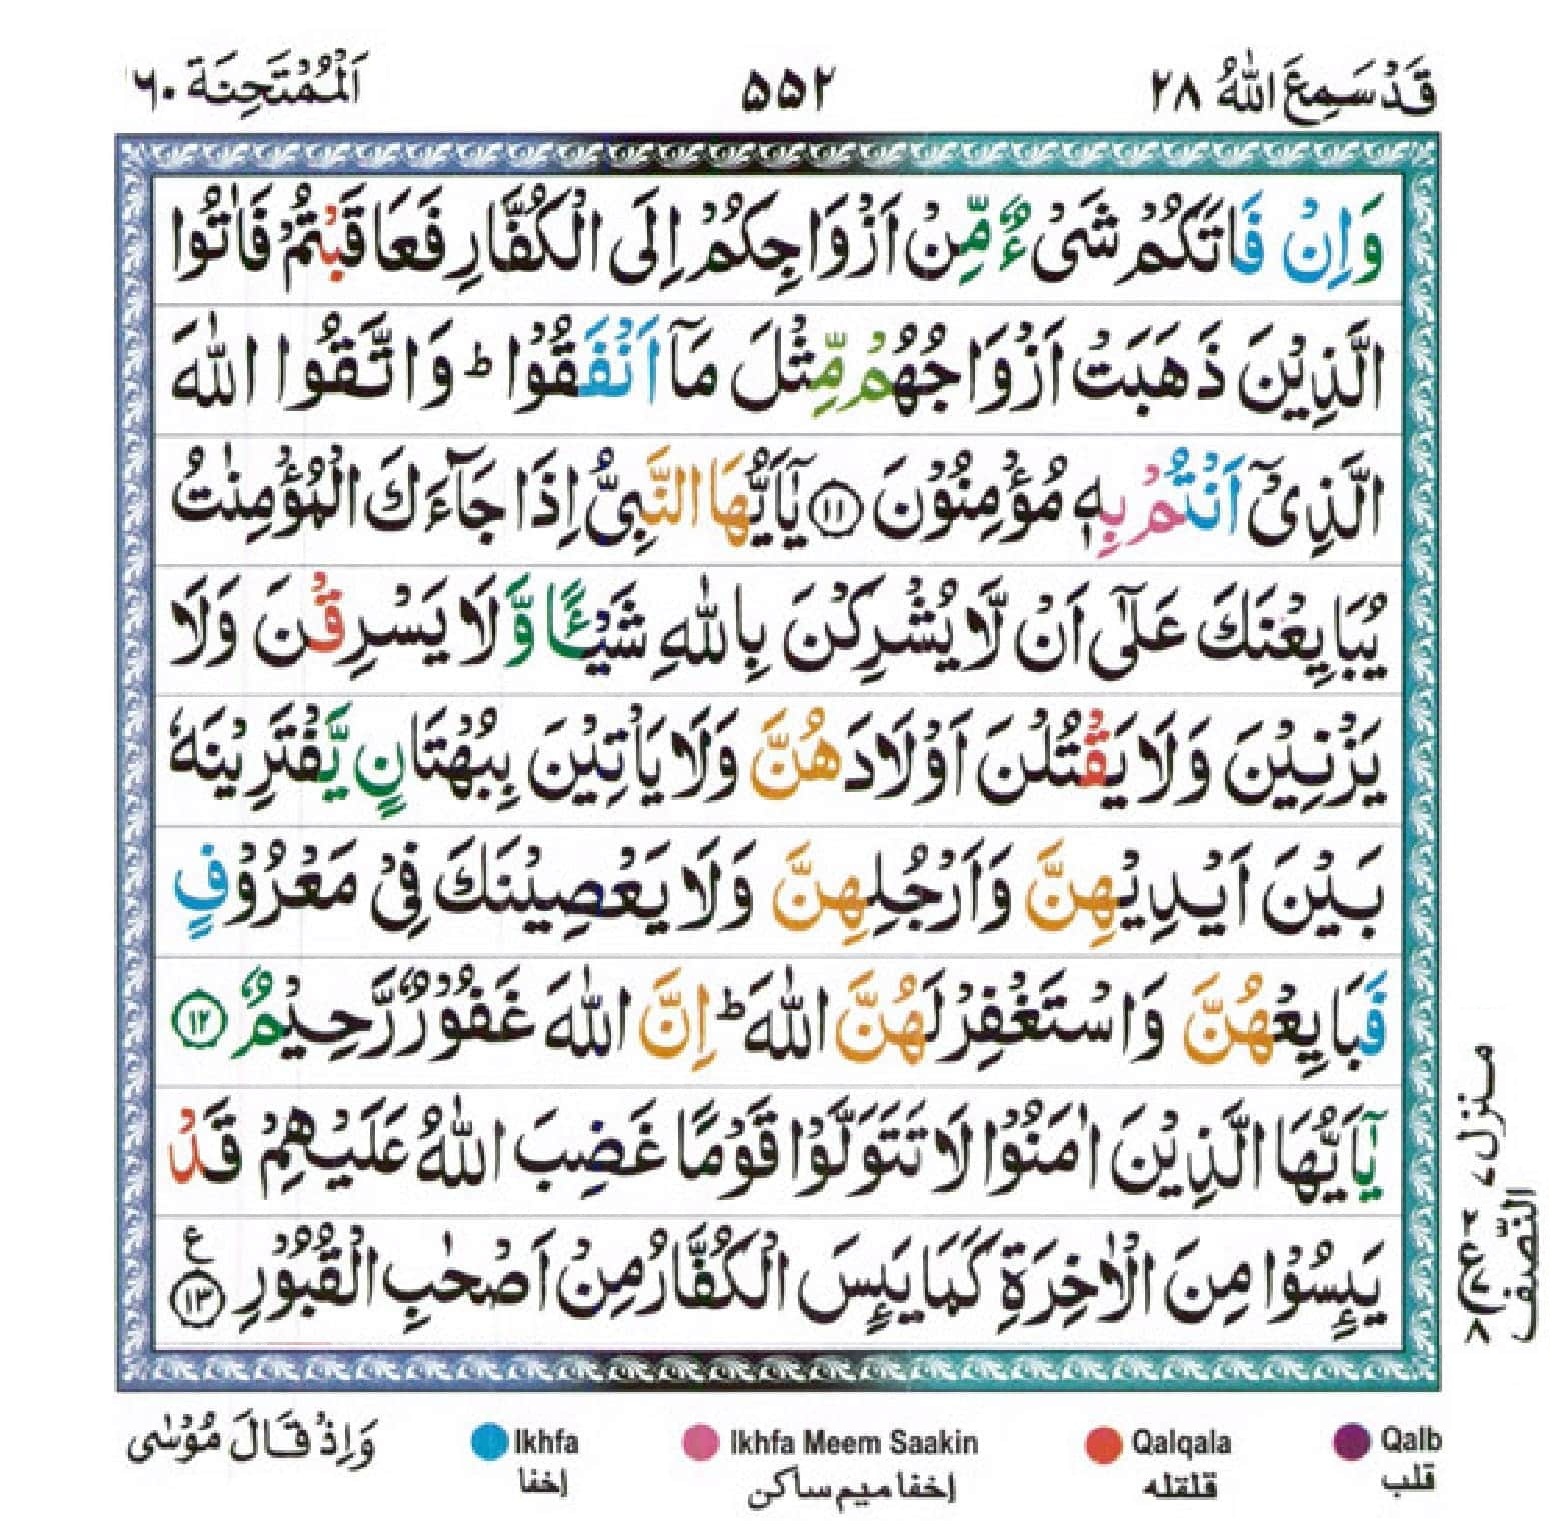 قَدْ سَمِعَ اللّٰهُ ٢٨
۵۵۲
اَلْمُمْتَحِنَة ٦٠
وَاِنْ فَاتَكُمْ شَیْءٌ مِّنْ اَزْوَاجِكُمْ اِلَى الْكُفَّارِ فَعَاقَبْتُمْ فَاٰتُوا
الَّذِیْنَ ذَهَبَتْ اَزْوَاجُهُمْ مِّثْلَ مَاۤ اَنْفَقُوْا ؕ وَاتَّقُوا اللّٰهَ
الَّذِیْۤ اَنْتُمْ بِهٖ مُؤْمِنُوْنَ ﴿١١﴾ یٰۤاَیُّهَا النَّبِیُّ اِذَا جَآءَكَ الْمُؤْمِنٰتُ
یُبَایِعْنَكَ عَلٰۤى اَنْ لَّا یُشْرِكْنَ بِاللّٰهِ شَیْـًٔا وَّلَا یَسْرِقْنَ وَلَا
یَزْنِیْنَ وَلَا یَقْتُلْنَ اَوْلَادَهُنَّ وَلَا یَاْتِیْنَ بِبُهْتَانٍ یَّفْتَرِیْنَهٗ
بَیْنَ اَیْدِیْهِنَّ وَاَرْجُلِهِنَّ وَلَا یَعْصِیْنَكَ فِیْ مَعْرُوْفٍ
فَبَایِعْهُنَّ وَاسْتَغْفِرْ لَهُنَّ اللّٰهَ ؕ اِنَّ اللّٰهَ غَفُوْرٌ رَّحِیْمٌ ﴿١٢﴾
یٰۤاَیُّهَا الَّذِیْنَ اٰمَنُوْا لَا تَتَوَلَّوْا قَوْمًا غَضِبَ اللّٰهُ عَلَیْهِمْ قَدْ
یَىِٕسُوْا مِنَ الْاٰخِرَةِ كَمَا یَىِٕسَ الْكُفَّارُ مِنْ اَصْحٰبِ الْقُبُوْرِ ﴿١٣﴾ ع
منزل ٧
النّصف
Qalb
Qalqala
Ikhfa Meem Saakin
Ikhfa
قلب
قلقله
إخفا ميم ساكن
إخفا
وَاِذْ قَالَ مُوْسٰى